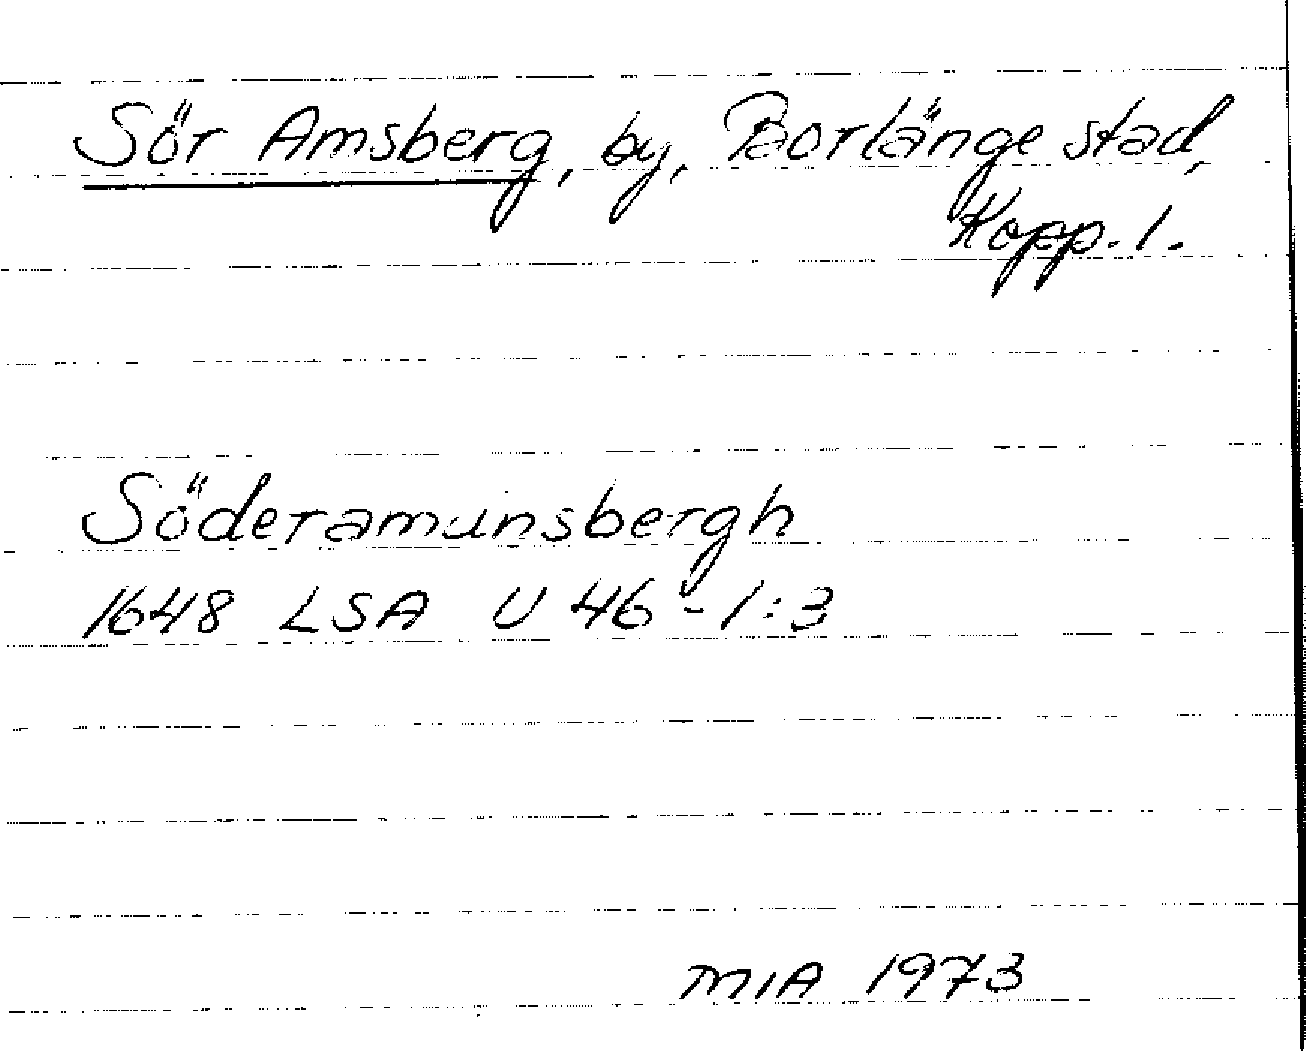 Sör Amsberg, by, Borlänge stad,
Kopp. l.
Söderamunsbergh
1648 LSA U 46-1:3
MIA 1973